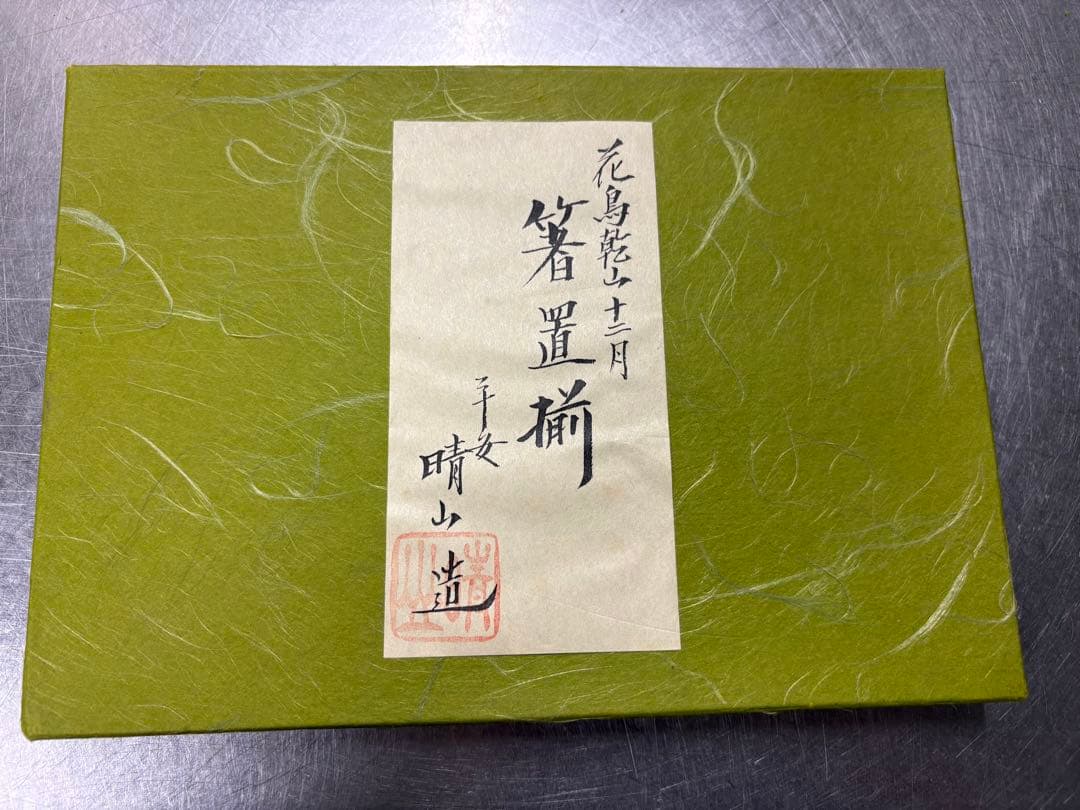 花鳥乾山十二月
箸置揃
平安
晴山造